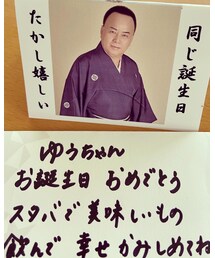 同じ誕生日
たかし嬉しい
ゆうちゃん
お誕生日 おめでとう
スタバで美味しいもの
飲んで 幸せかみしめてね